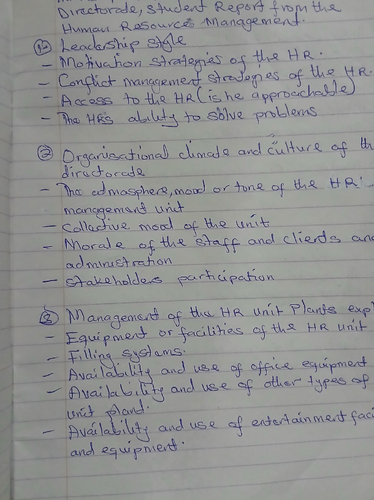 Directorate, student Report from the
Human Resources Management.
① Leadership style
- Motivation strategies of the HR.
- Conflict management strategies of the HR.
- Access to the HR (is he approachable)
- The HR's ability to solve problems
② Organisational climate and culture of th
directorate
- The admosphere, mood or tone of the HR
management unit
- Collective mood of the unit
- Morale of the staff and clients and
administration
- Stakeholders participation
③ Management of the HR unit Plants exp
- Equipment or facilities of the HR unit
- Filling systems.
- Availability and use of office equipment
- Availability and use of other types of
unit plant.
- Availability and use of entertainment faci
and equipment.